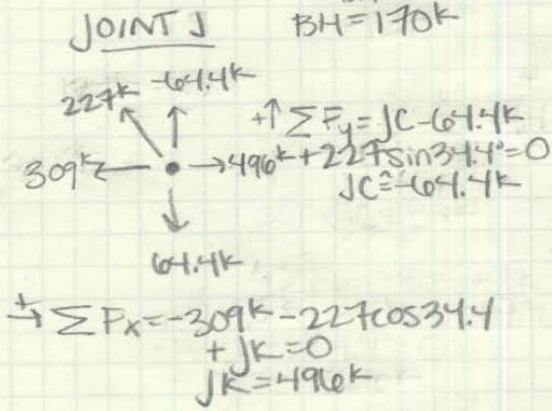 JOINT J
BH=170k
227k -64.4k
309k 496k
64.4k
+↑ ΣFy= JC-64.4k
+227sin34.4°=0
JC=-64.4k
+→ ΣFx=-309k-227cos34.4
+JK=0
JK=496k